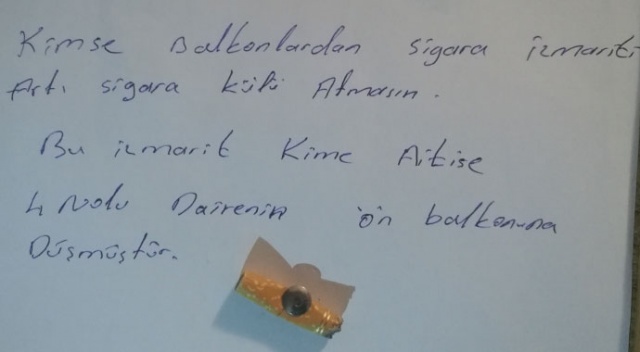 Kimse Balkonlardan sigara izmariti
Artı sigara külü Atmasın.
Bu izmarit Kime Aitise
4 Nolu Dairenin ön balkonuna
Düşmüştür.